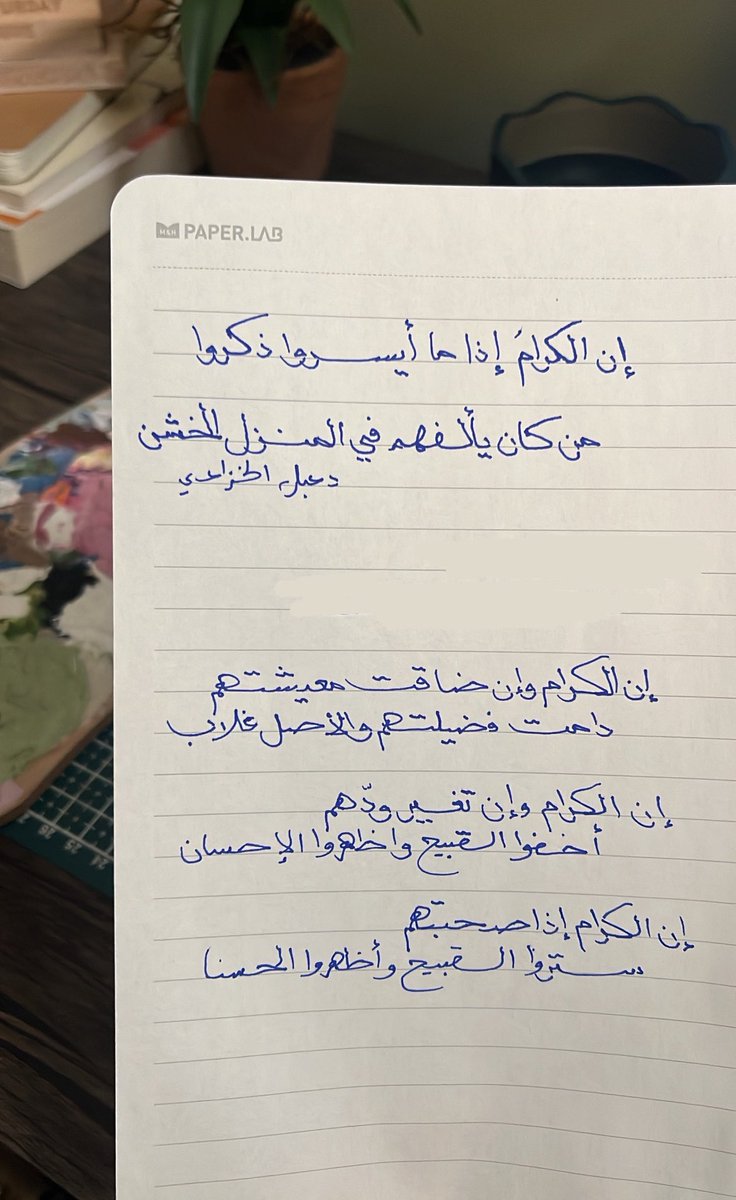 PAPER.LAB
إن الكرامَ إذا ما أيسروا ذكروا
من كان يألفهم في المنزل الخشن
دعبل الخزاعي
إن الكرام وإن ضاقت معيشتهم
دامت فضيلتهم والأصل غلاب
إن الكرام وإن تغير ودّهم
أخفوا القبيح واظهروا الإحسان
إن الكرام إذا صحبتهم
ستروا القبيح وأظهروا الحسنا